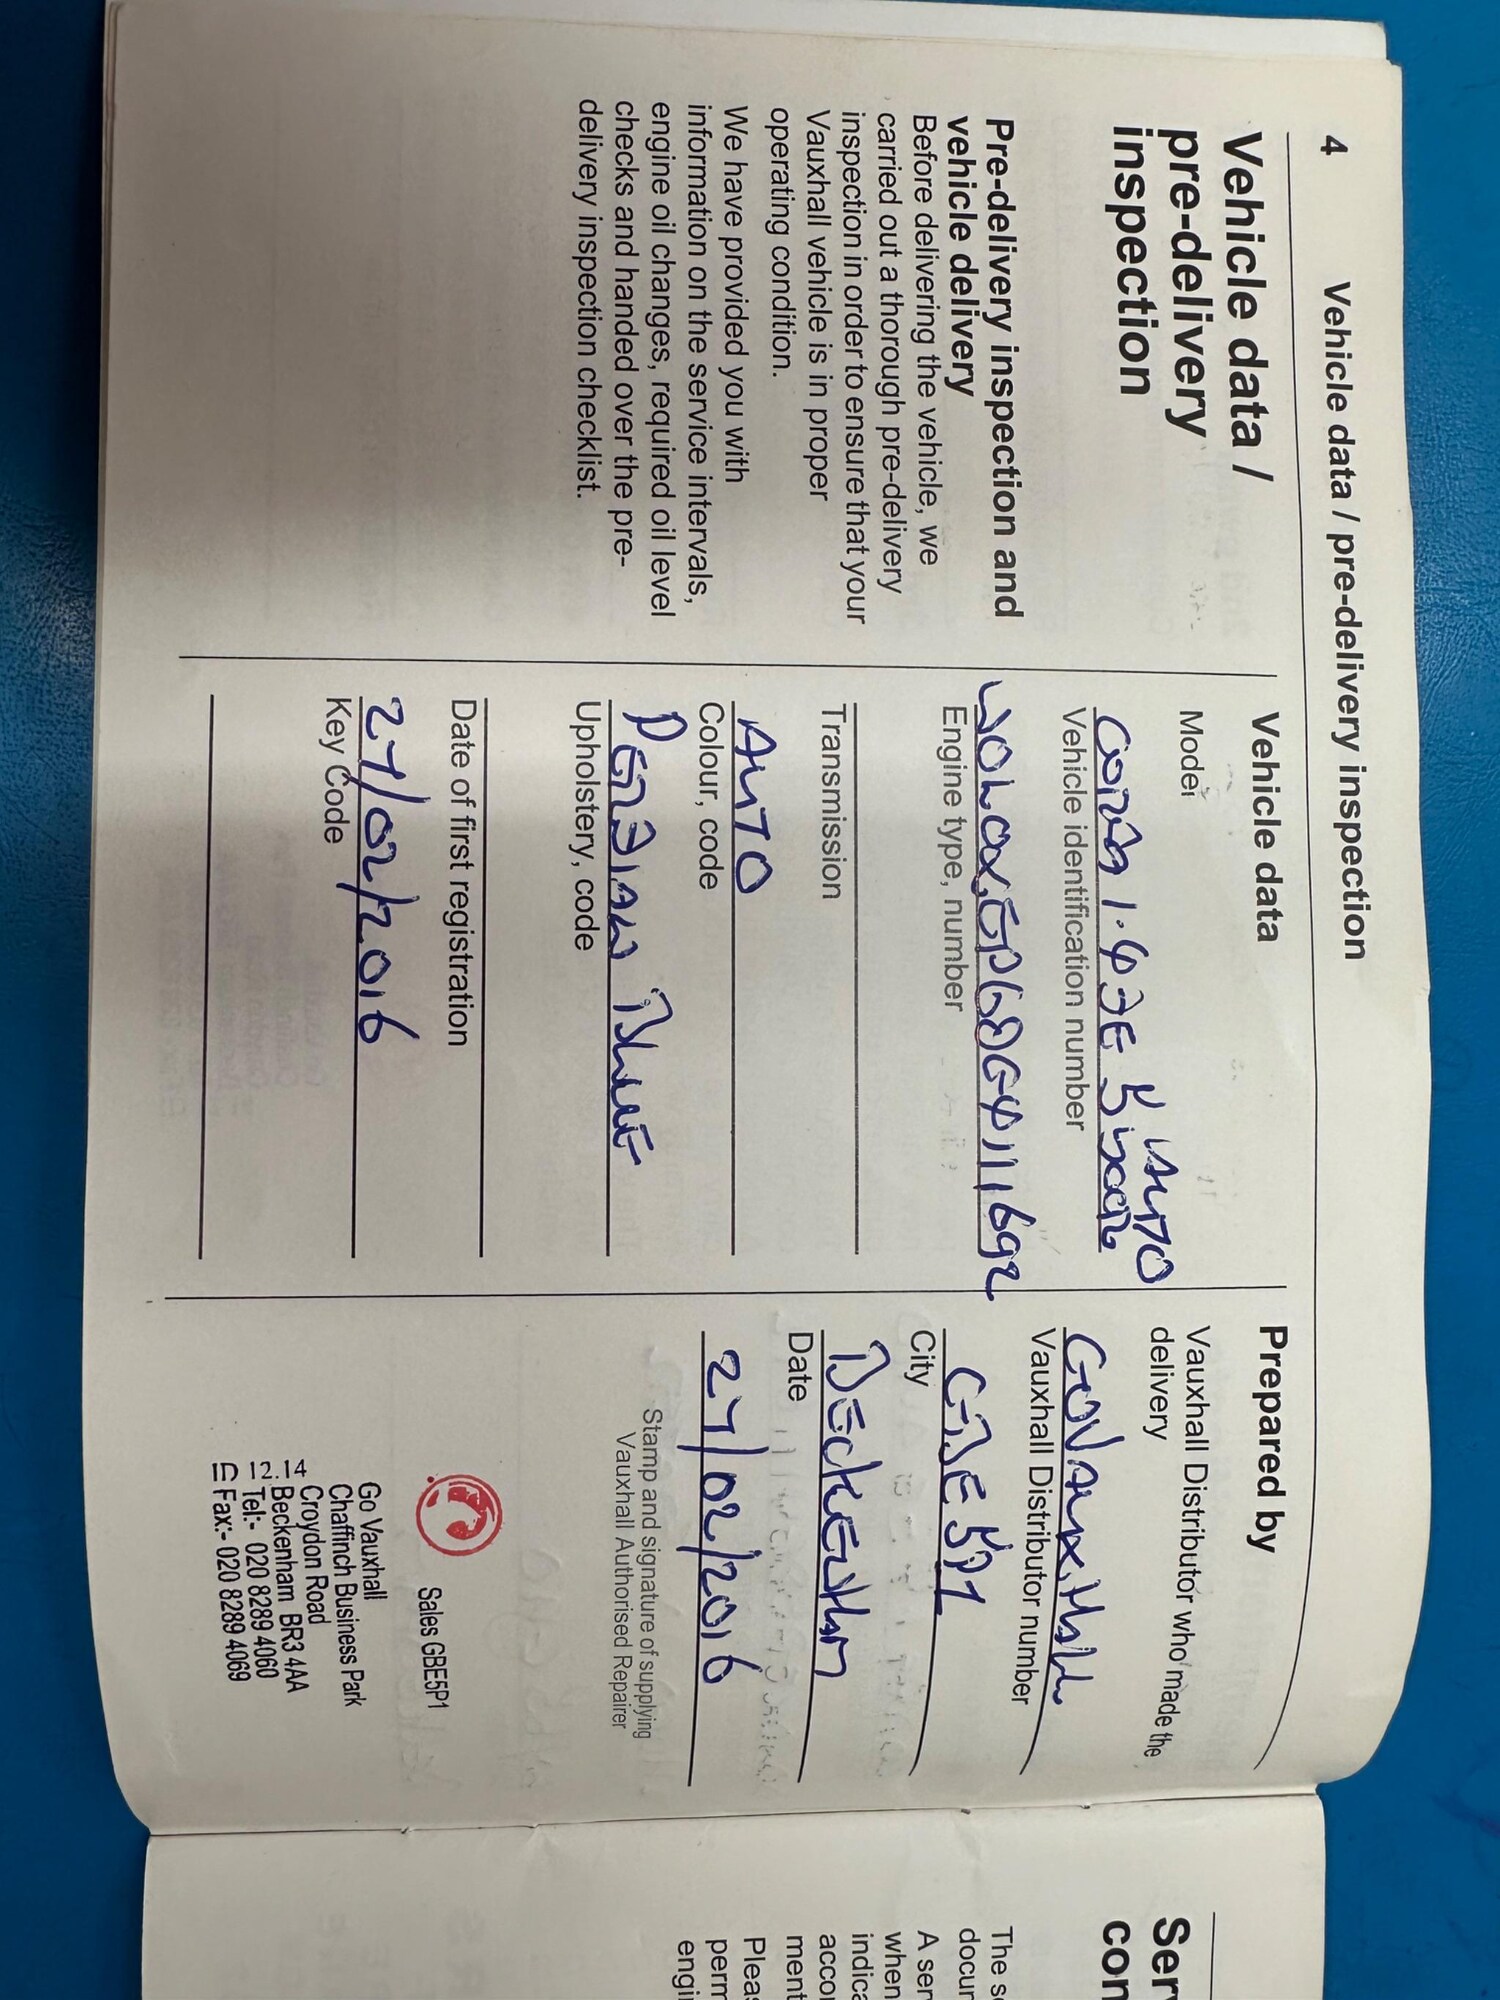 4 Vehicle data / pre-delivery inspection
Vehicle data /
pre-delivery
inspection
Pre-delivery inspection and
vehicle delivery
Before delivering the vehicle, we
carried out a thorough pre-delivery
inspection in order to ensure that your
Vauxhall vehicle is in proper
operating condition.
We have provided you with
information on the service intervals,
engine oil changes, required oil level
checks and handed over the pre-
delivery inspection checklist.
Vehicle data
Model
AUTO
1.4 SE 5 DOOR
Vehicle identification number
Engine type, number
Transmission
AUTO
Colour, code
PERSIAN BLUE
Upholstery, code
Date of first registration
27/02/2016
Key Code
Prepared by
Vauxhall Distributor who made the
delivery
GOVAUXHALL
Vauxhall Distributor number
GBE5P1
City
BECKENHAM
Date
27/02/2016
Stamp and signature of supplying
Vauxhall Authorised Repairer
Sales GBE5P1
Go Vauxhall
Chaffinch Business Park
Croydon Road
Beckenham BR3 4AA
12.14 Tel:- 020 8289 4060
Fax:- 020 8289 4069
Ser
con
The se
docu
A ser
when
indica
acco
ment
Pleas
perm
engi